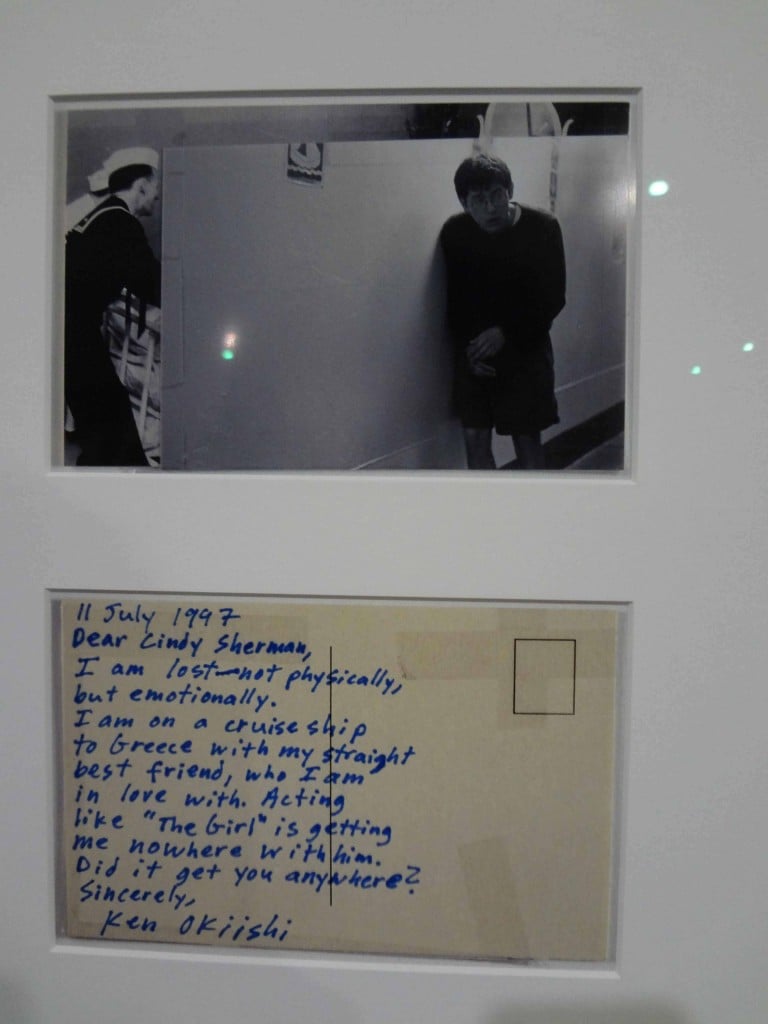 11 July 1997
Dear Cindy Sherman,
I am lost—not physically,
but emotionally.
I am on a cruise ship
to Greece with my straight
best friend, who I am
in love with. Acting
like "The Girl" is getting
me nowhere with him.
Did it get you anywhere?
Sincerely,
Ken Okiishi